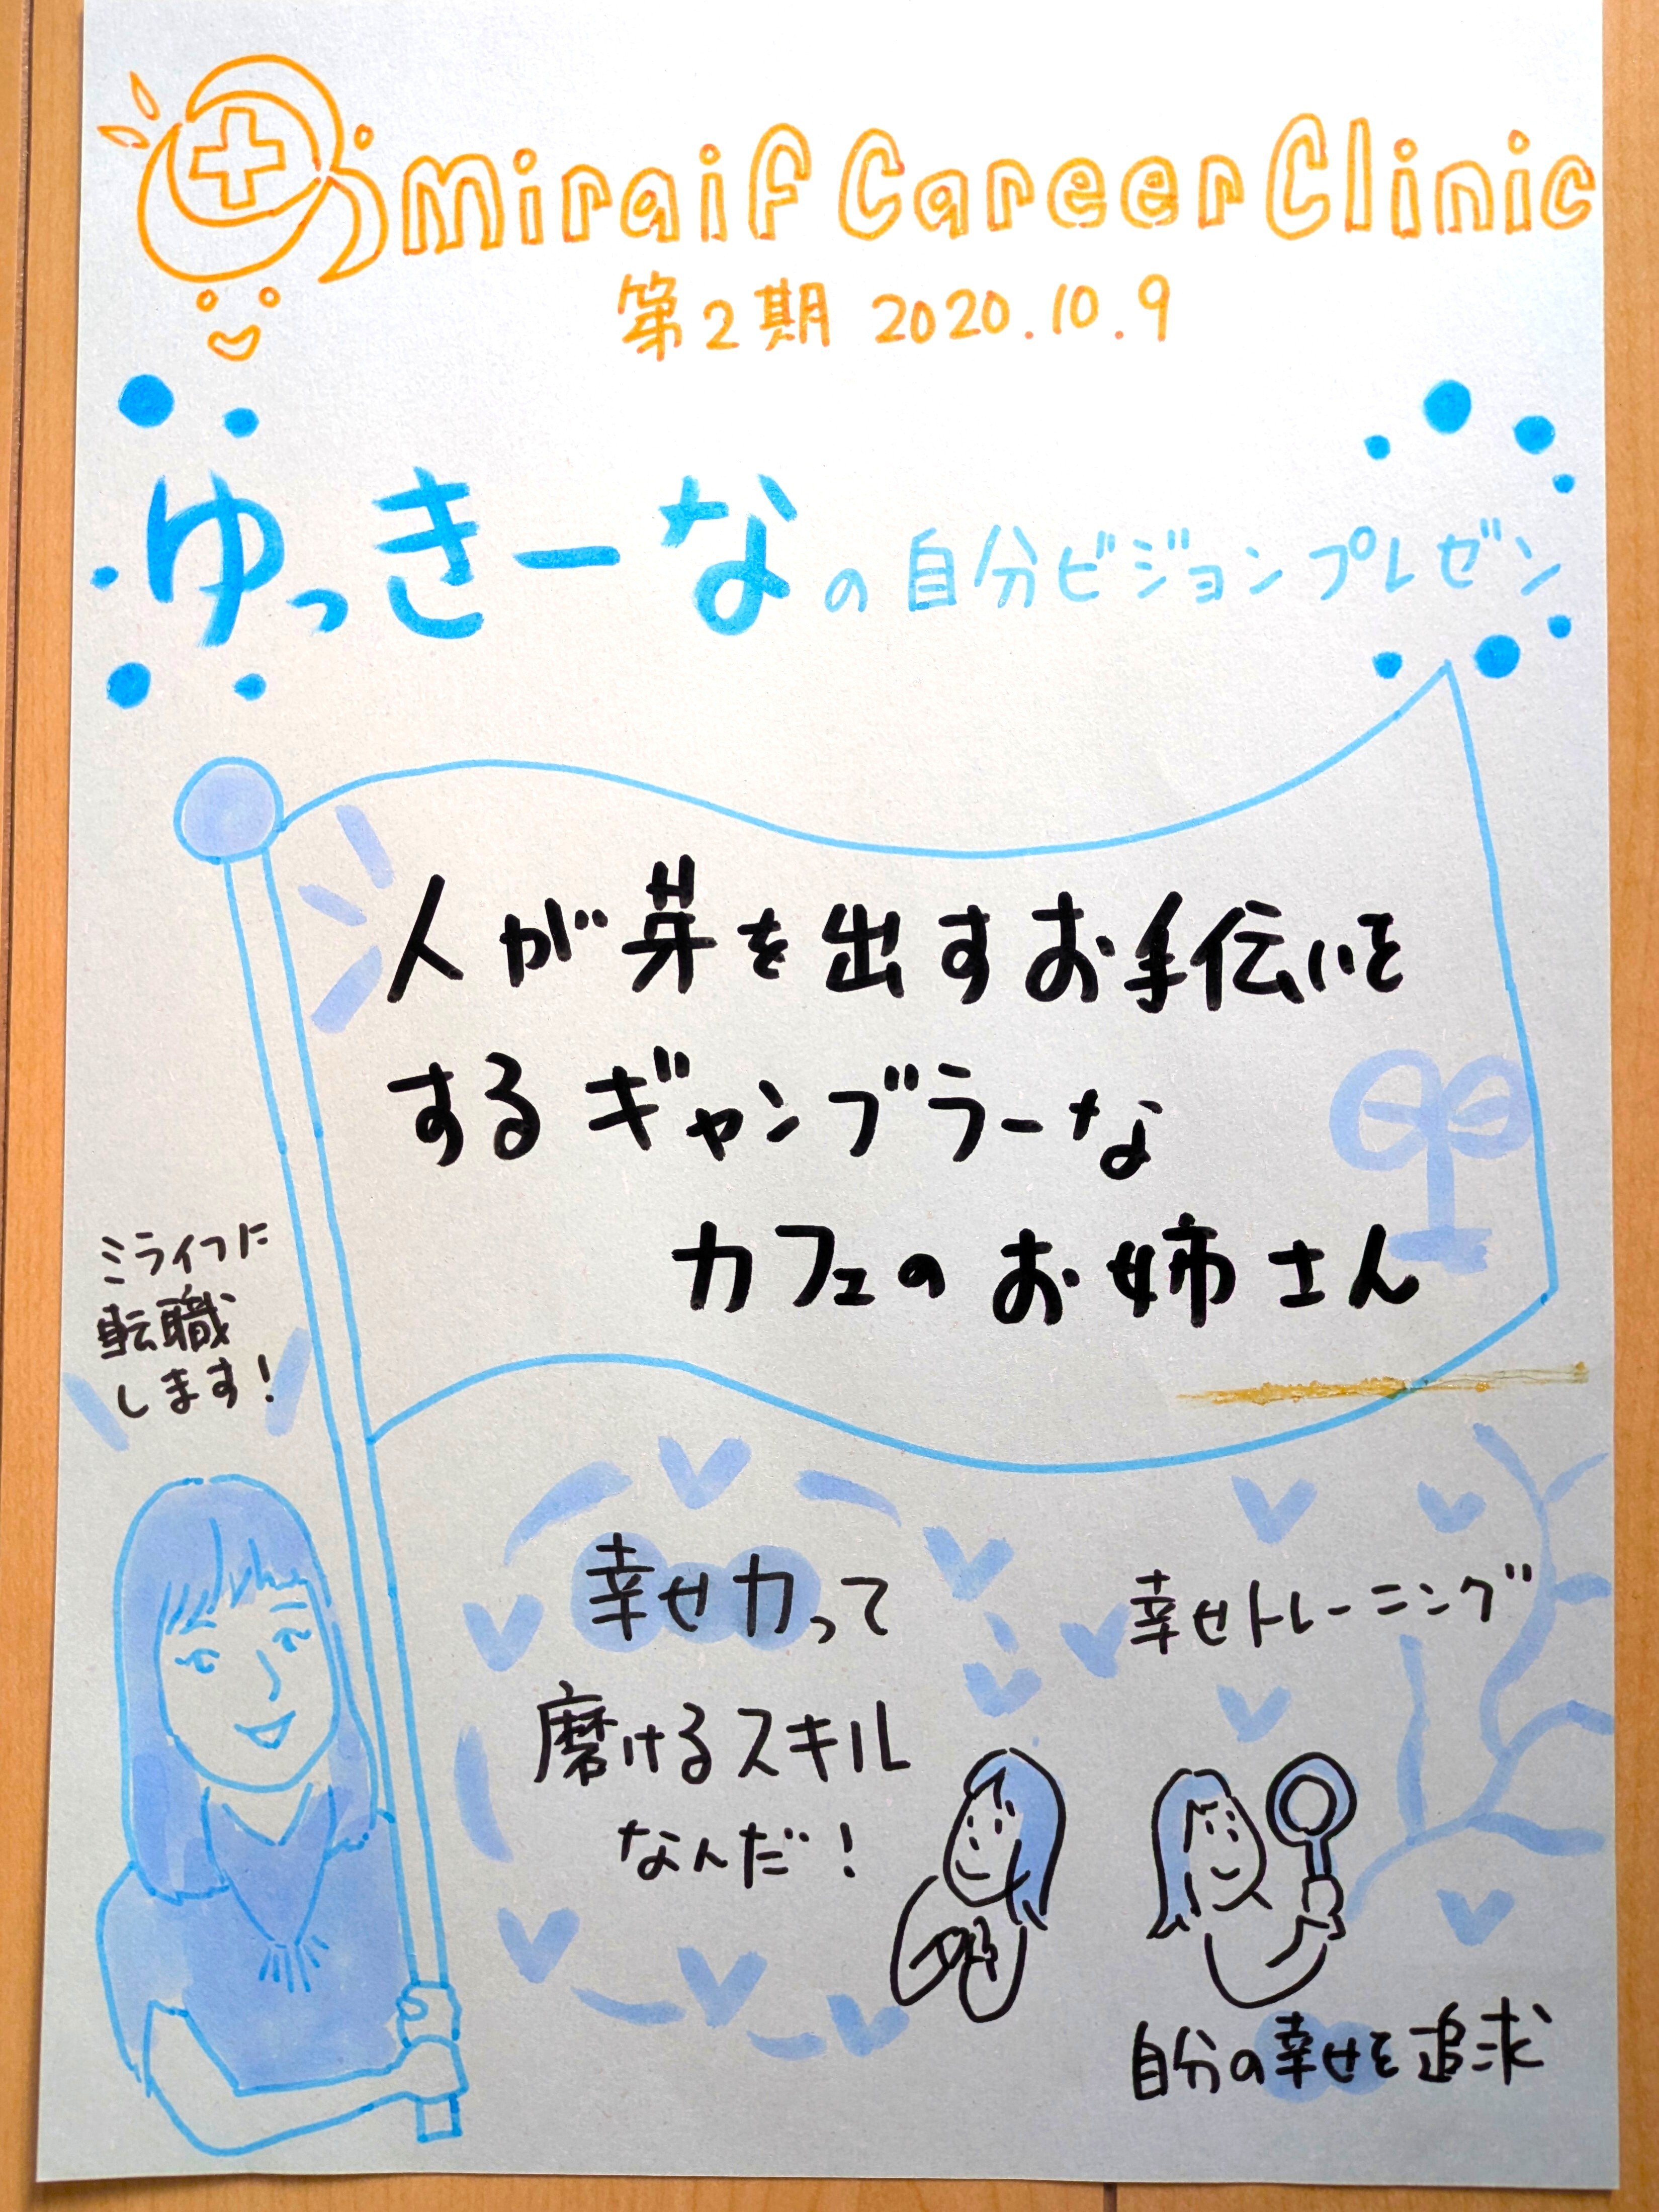 miraif Career Clinic
第2期 2020.10.9
ゆっきーなの自分ビジョンプレゼン
人が芽を出すお手伝いを
するギャンブラーな
カフェのお姉さん
ミライフに
転職
します!
幸せ力って
磨けるスキル
なんだ!
幸せトレーニング
自分の幸せを追求